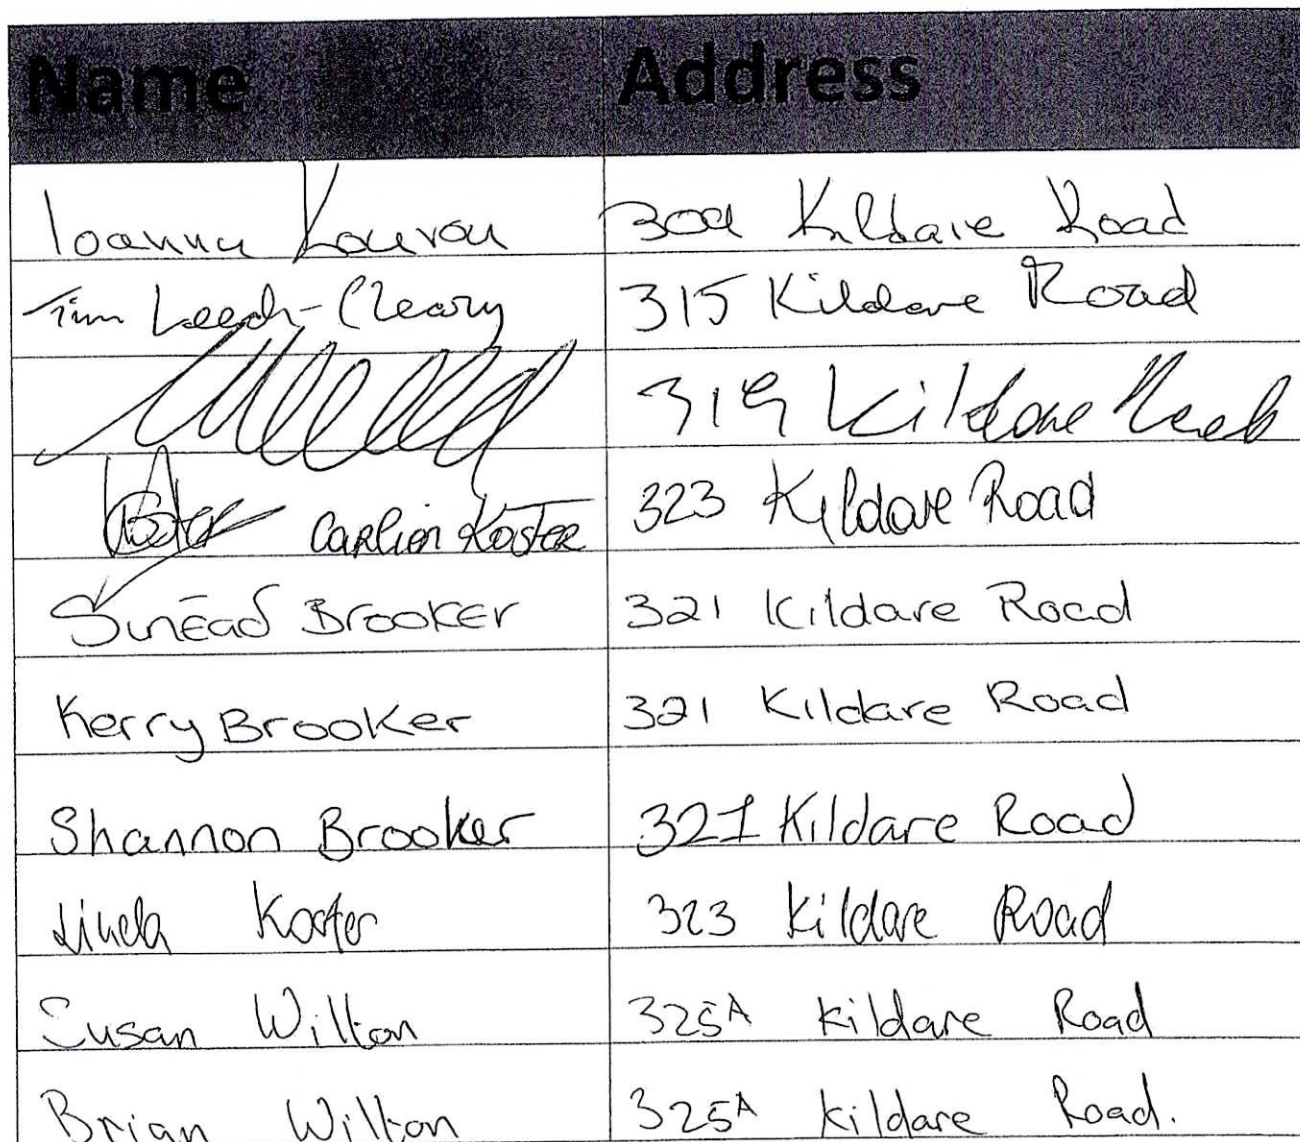 Name Address
Ioanna Kouvou 309 Kildare Road
Tim Leech-Cleary 315 Kildare Road
319 Kildare Road
Koster Carlien Koster 323 Kildare Road
Sinéad Brooker 321 Kildare Road
Kerry Brooker 321 Kildare Road
Shannon Brooker 321 Kildare Road
Linda Koster 323 Kildare Road
Susan Wilton 325A Kildare Road
Brian Wilton 325A Kildare Road.